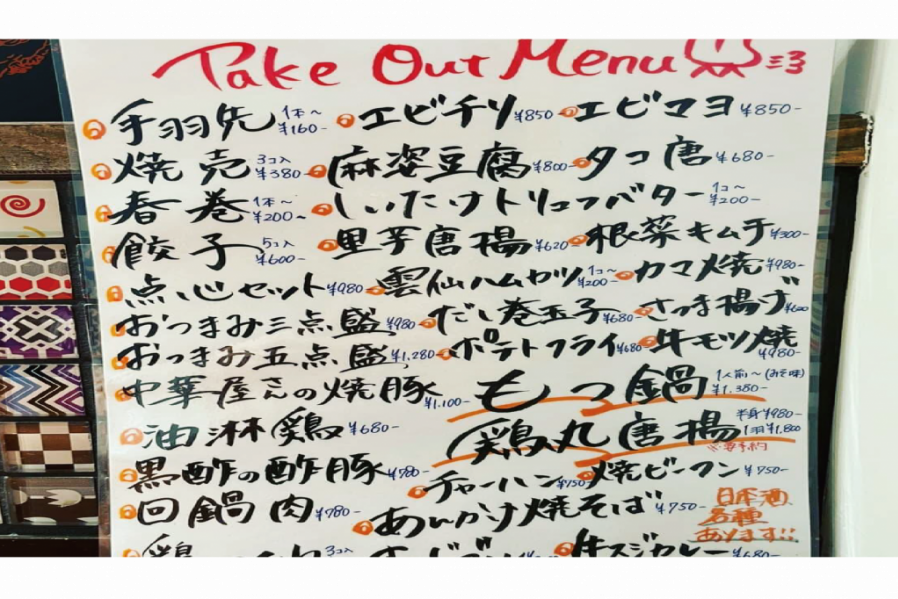 Take Out Menu
手羽先 1本～ ¥160- エビチリ ¥850 エビマヨ ¥850-
焼売 3コ入 ¥380- 麻婆豆腐 ¥800- タコ唐 ¥680-
春巻 1本～ ¥200～ しいたけトリュフバター 1コ～ ¥200-
餃子 5コ入 ¥600- 里芋唐揚 ¥620- 根菜キムチ ¥300-
点心セット ¥980- 雲仙ハムカツ 1コ～ ¥200- カマ焼 ¥980-
おつまみ三点盛 ¥980 だし巻玉子 ¥680- さつま揚げ ¥600
おつまみ五点盛 ¥1,280- ポテトフライ ¥680- 牛モツ焼 ¥980-
中華屋さんの焼豚 ¥1,100- もつ鍋 1人前～(みそ味) ¥1,380-
油淋鶏 ¥680- 鶏丸唐揚 半身¥980- 1羽¥1,800 ※要予約
黒酢の酢豚 ¥780- チャーハン ¥750- 焼ビーフン ¥750-
回鍋肉 ¥780- あんかけ焼そば ¥750- 日本酒 各種 あります!!
鶏 3コ入 牛スジカレー ¥680-